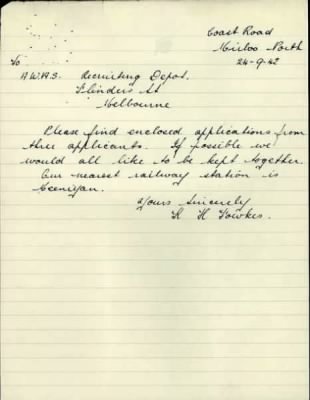 Coast Road
Mirboo North
24-9-42
To
A.W.A.S. Recruiting Depot.
Flinders St
Melbourne
Please find enclosed, applications from
three applicants. If possible we
would all like to be kept together.
Our nearest railway station is
Yours Sincerely
K H Fowkes.